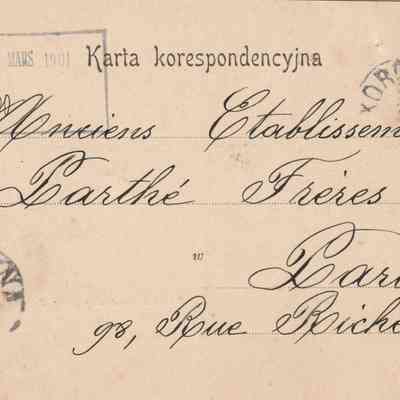 MARS 1901
Karta korespondencyjna
KORO
Anciens Etablissem
Parthé Frères
w
Pari
98, Rue Riche